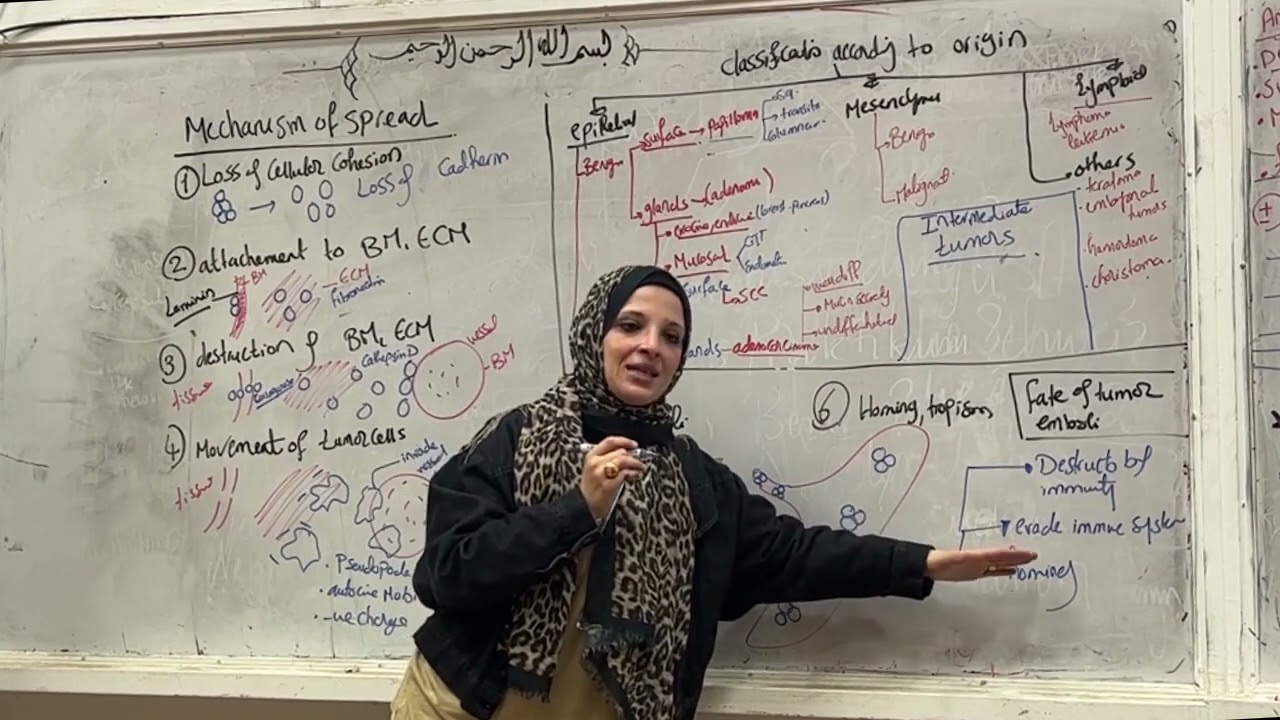 بسم الله الرحمن الرحيم
Mechanism of spread
① Loss of Cellular Cohesion
Loss of Cadherin
② attachement to BM, ECM
Laminin
BM
ECM
fibronectin
③ destruction of BM, ECM
tissue
Cathepsin D
vessel
BM
④ Movement of tumor cells
tissue
invade
vessel
. Pseudopode
. autocrine Moti
. -ve charge
Classificatio according to origin
epithelial
Benign
surface → papilloma
sq.
transitio
columnar
glands → (adenoma)
Mucosal
GIT
surface
SCC
Mucin secrety
undifferentiated
ands → adenocarcinoma
Mesenchyme
Benign
Malignant
Lymphoid
Lymphoma
leukemia
others
. teratoma
. embryonal
tumors
. hamartoma
. choristoma
Intermediate
tumors
⑥ Homing, tropism
Fate of tumor
emboli
Destructo by
immunity
evade immune system
Homing